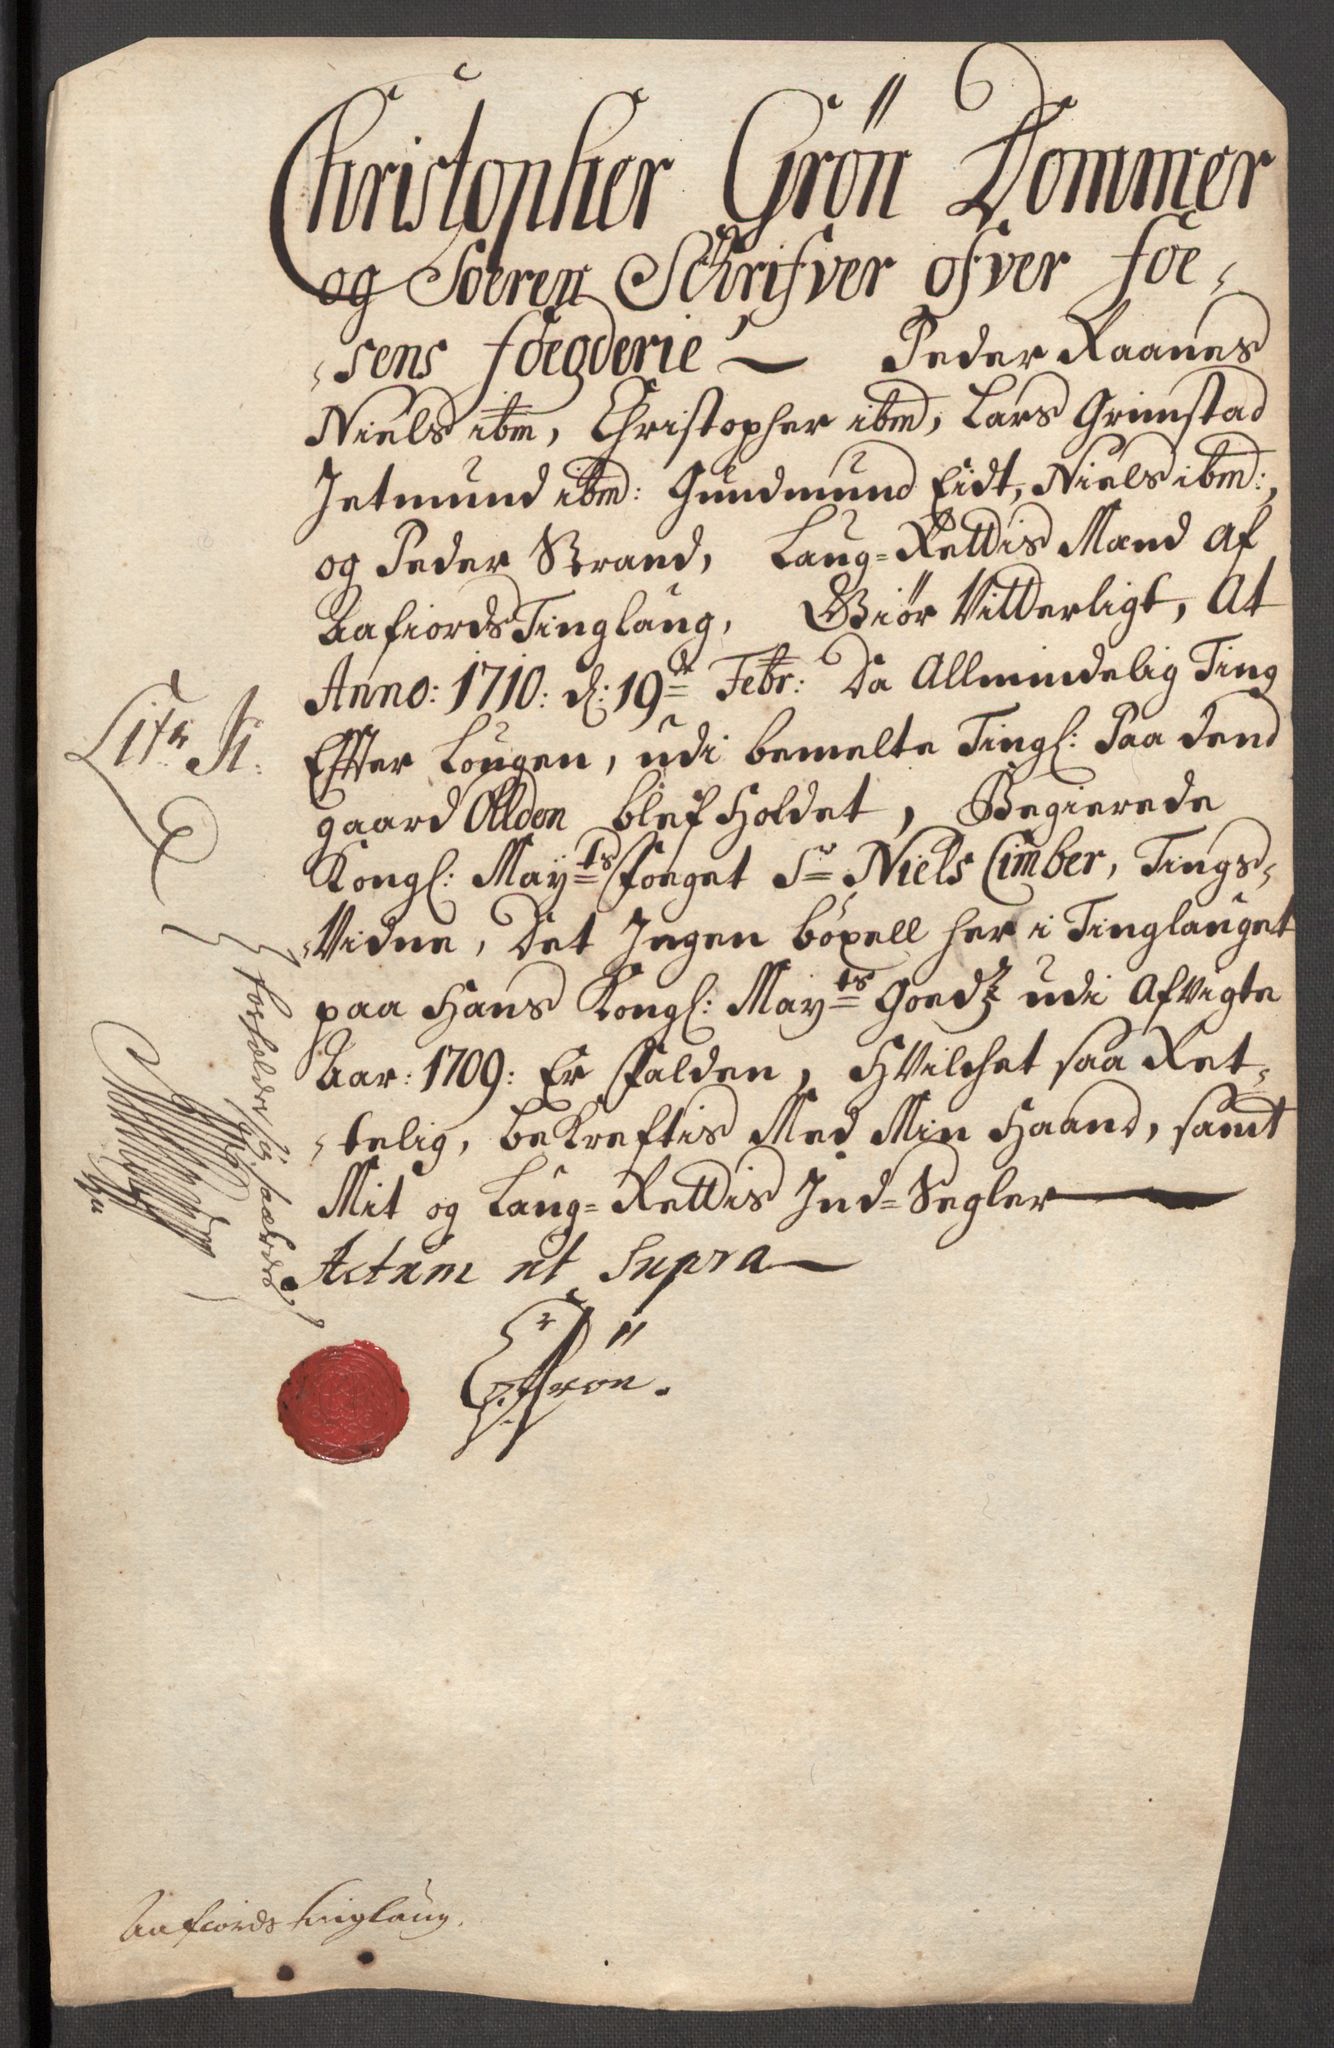 Christopher Grön Dommer
og Soeren Schrifver ofver foe-
sens foegderie Peder Raanes
Niels ibm, Christopher ibm, Lars Grimstad
Jetmund ibm: Gundmund Eidt, Niels ibm:,
og Peder Strand, Laug-Rettis Mænd af
Aafiords Tinglaug, Giör Vitterligt, At
Anno: 1710: d: 19de Febr: Da Allmindelig Ting
Effter Lougen, udi bemelte Tingl: Paa dend
gaard Allden blef Holdet, Begierede
Kongl: Mayts Foeget Sr Niels Cimber, Tings-
-Vidne, Det Ingen böxell her i Tinglauget
paa Hans Kongl: Mayts Goedz udi Afvigte
Aar: 1709: Er Falden, HVilchet saa Ret-
-telig, bekreftis Med Min Haand, samt
Mit og Laug-Rettis Ind-Segler
Actum ut Supra
CGrön.
Litr K:
Aafiords tinglaug.